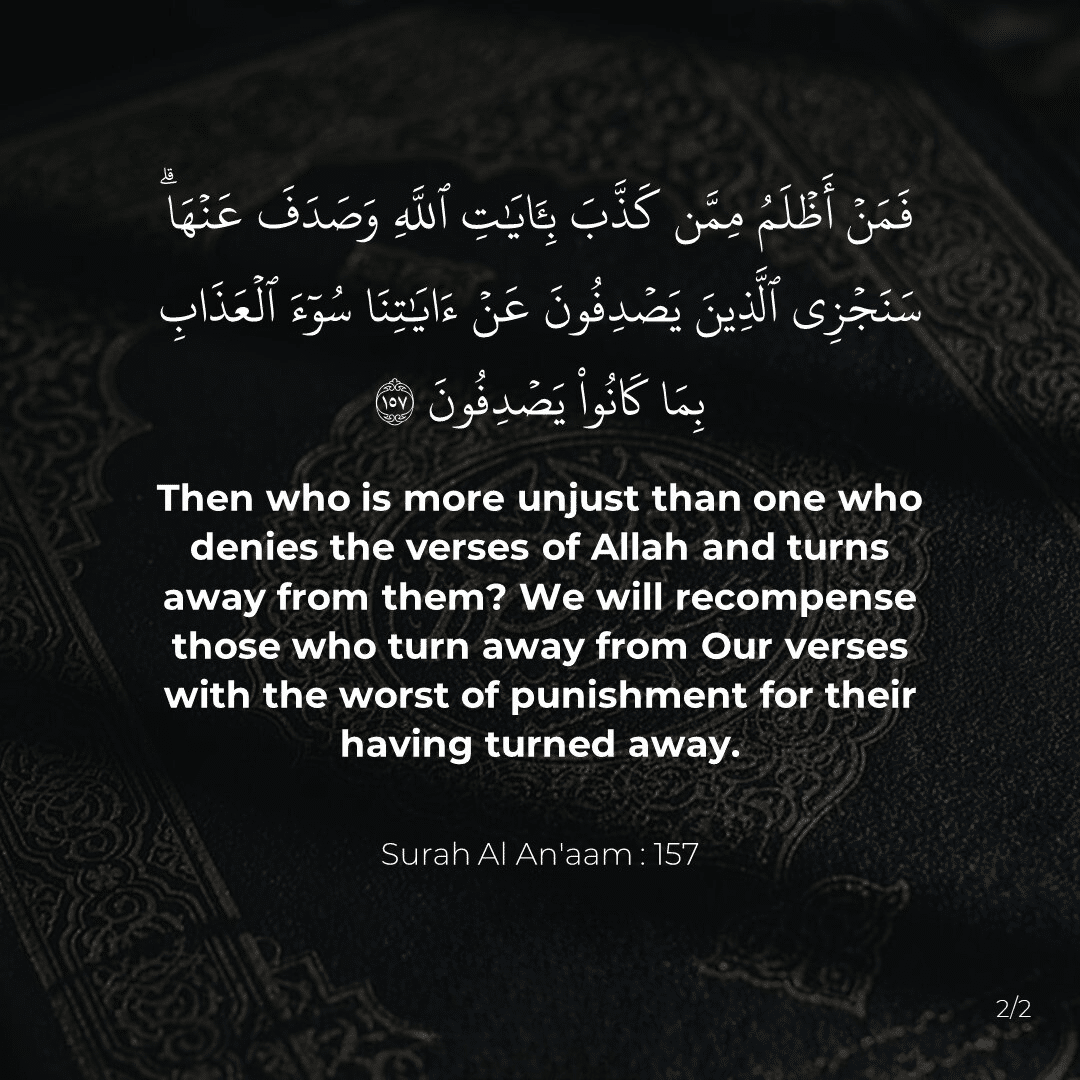 فَمَنْ أَظْلَمُ مِمَّن كَذَّبَ بِـَٔايَـٰتِ ٱللَّهِ وَصَدَفَ عَنْهَا ۗ
سَنَجْزِى ٱلَّذِينَ يَصْدِفُونَ عَنْ ءَايَـٰتِنَا سُوٓءَ ٱلْعَذَابِ
بِمَا كَانُوا۟ يَصْدِفُونَ ١٥٧
Then who is more unjust than one who
denies the verses of Allah and turns
away from them? We will recompense
those who turn away from Our verses
with the worst of punishment for their
having turned away.
Surah Al An'aam : 157
2/2